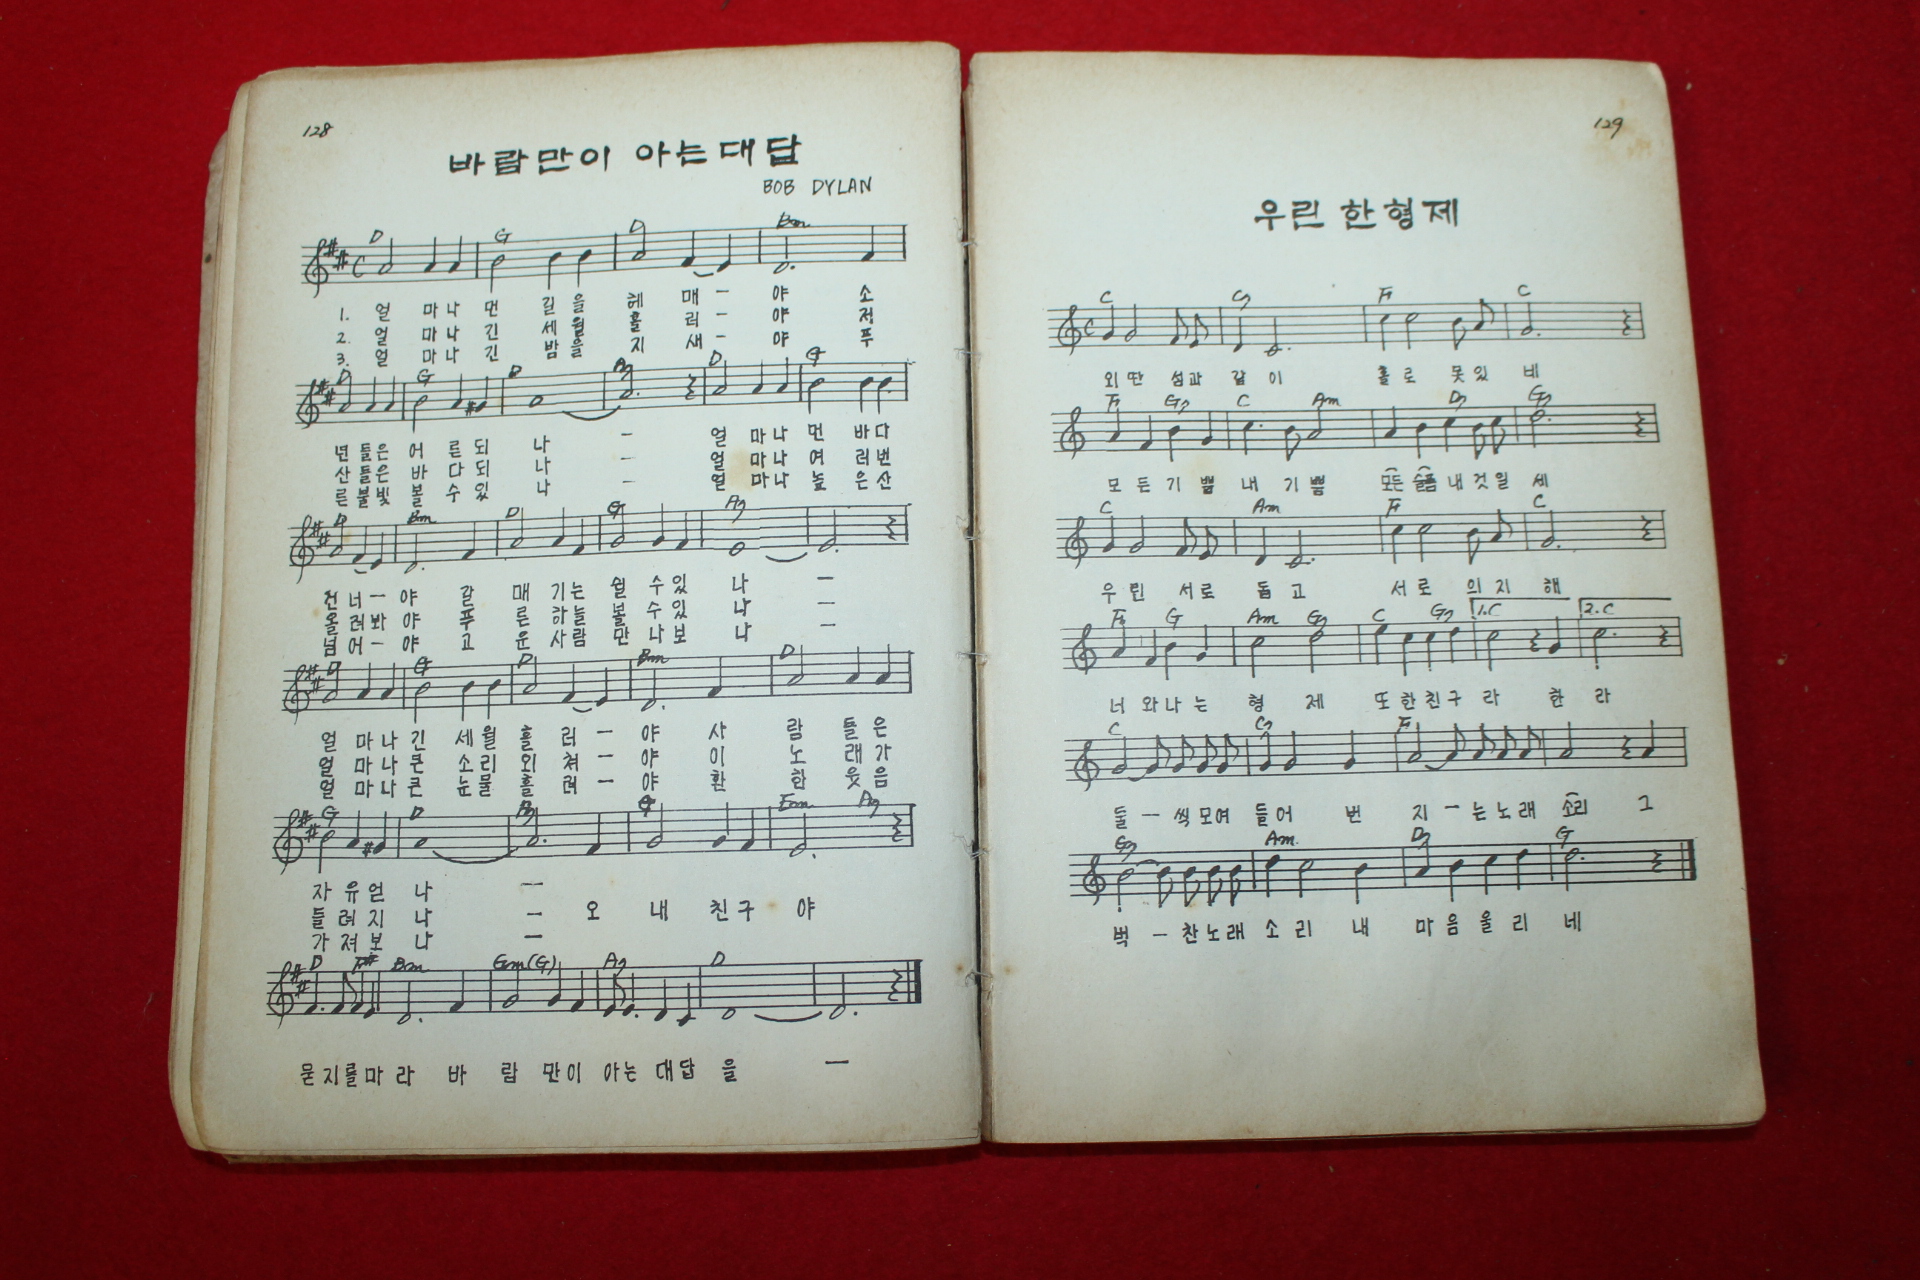 128
바람만이 아는대답
BOB DYLAN
D G D Bm
1. 얼 마나 먼 길을 헤 매 - 야 소
2. 얼 마나 긴 세월 흘 러 - 야 저
3. 얼 마나 긴 밤을 지 새 - 야 푸
D G D A7 D G
년들은 어 른되 나 - 얼 마나 먼 바다
산들은 바 다되 나 - 얼 마나 여 러번
른불빛 볼 수있 나 - 얼 마나 높 은산
D Bm D G A7
건너-야 갈 매기는 쉴 수있 나 -
올려봐야 푸 른하늘 볼 수있 나 -
넘어-야 고 운사람 만 나보 나 -
D G D Bm D
얼 마나긴 세월 흘 러 - 야 사 람 들은
얼 마나큰 소리 외 쳐 - 야 이 노 래가
얼 마나큰 눈물 흘 려 - 야 환 한 웃음
G D G Em A7
자유언 나 -
들려지 나 - 오 내 친구 야
가져보 나 -
D F# Bm Gm(G) A7 D
묻지를마라 바 람 만이 아는 대답 을 -
129
우린 한형제
C G7 F C
외딴 섬과 같이 홀로 못있 네
F G7 C Am D7 G7
모든기쁨 내 기쁨 모든슬픔내것일 세
C Am F C
우린 서로 돕고 서로 의지 해
F G Am G7 C G7 1.C 2.C
너 와나는 형 제 또한친구 라 한 라
C G7 F
둘 - 씩모여 들어 번 지-는노래 소리 그
G7 Am. D7 G
벅 - 찬노래 소리 내 마음울리 네